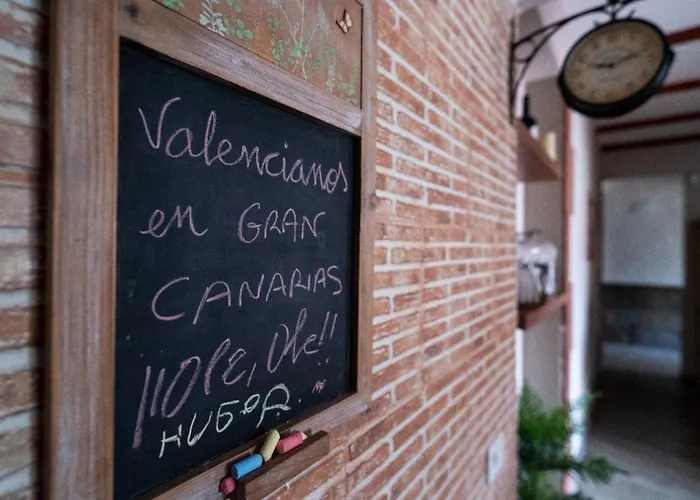 Valencianos
en GRAN
CANARIAS
¡¡OPE, Ole!!
HUGOR.